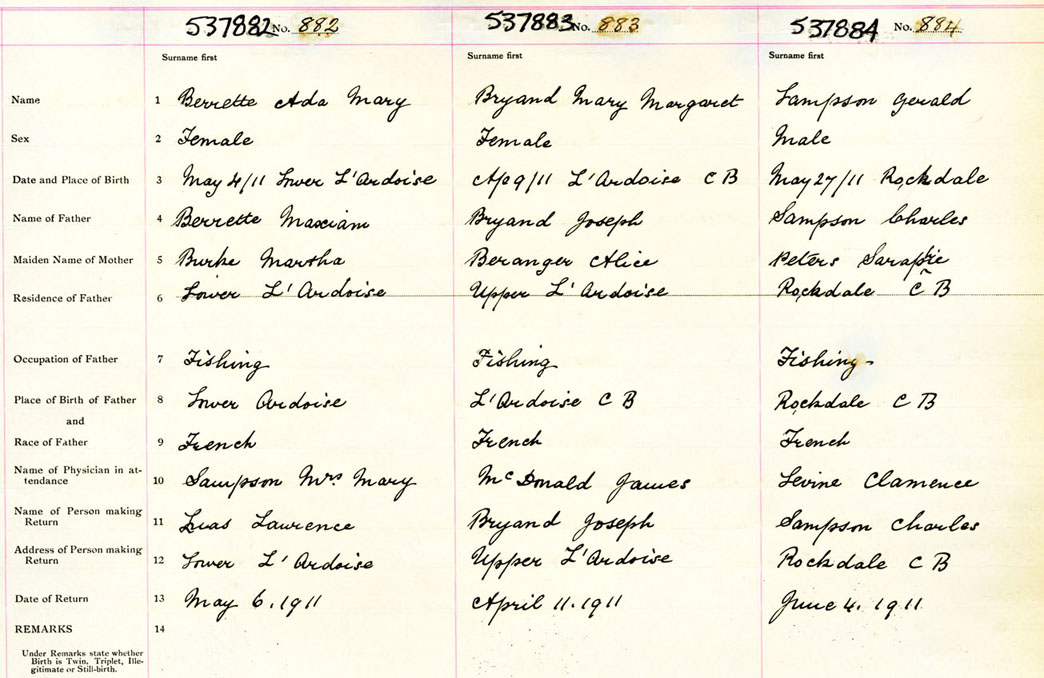 537882 No. 882 537883 No. 883 537884 No. 884
Surname first Surname first Surname first
Name 1 Berrette Ada Mary Bryand Mary Margaret Sampson Gerald
Sex 2 Female Female Male
Date and Place of Birth 3 May 4/11 Lower L'Ardoise Ap 9/11 L'Ardoise C B May 27/11 Rockdale
Name of Father 4 Berrette Maxiam Bryand Joseph Sampson Charles
Maiden Name of Mother 5 Burke Martha Beranger Alice Peters Sarapie
Residence of Father 6 Lower L'Ardoise Upper L'Ardoise Rockdale C B
Occupation of Father 7 Fishing Fishing Fishing
Place of Birth of Father 8 Lower Ardoise L'Ardoise C B Rockdale C B
and
Race of Father 9 French French French
Name of Physician in at-
tendance 10 Sampson Mrs Mary McDonald James Levine Clamence
Name of Person making
Return 11 Lawrence Bryand Joseph Sampson Charles
Address of Person making
Return 12 Lower L'Ardoise Upper L'Ardoise Rockdale C B
Date of Return 13 May 6. 1911 April 11. 1911 June 4. 1911
REMARKS 14
Under Remarks state whether
Birth is Twin, Triplet, Ille-
gitimate or Still-birth.